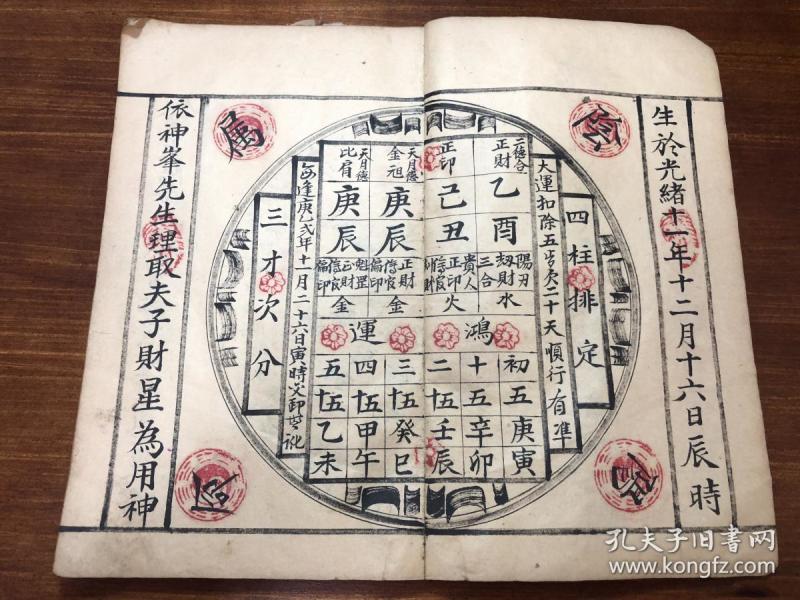 生於光緒十一年十二月十六日辰時
四柱排定
大運扣除五歲欠二十天順行有準
二德合
正財
乙
酉
陽刃
劫財
三合
水
正印
己
丑
貴人
正印
火
天月德
金祖
庚
辰
正財
偏印
金
天月德
比肩
庚
辰
魁罡
正財
偏印
金
鴻運
初五庚寅
十五辛卯
二十五壬辰
三十五癸巳
四十五甲午
五十五乙未
每逢庚乙弍年十一月二十六日寅時交卸
三才次分
依神峯先生理取夫子財星為用神
属
孔夫子旧书网
www.kongfz.com